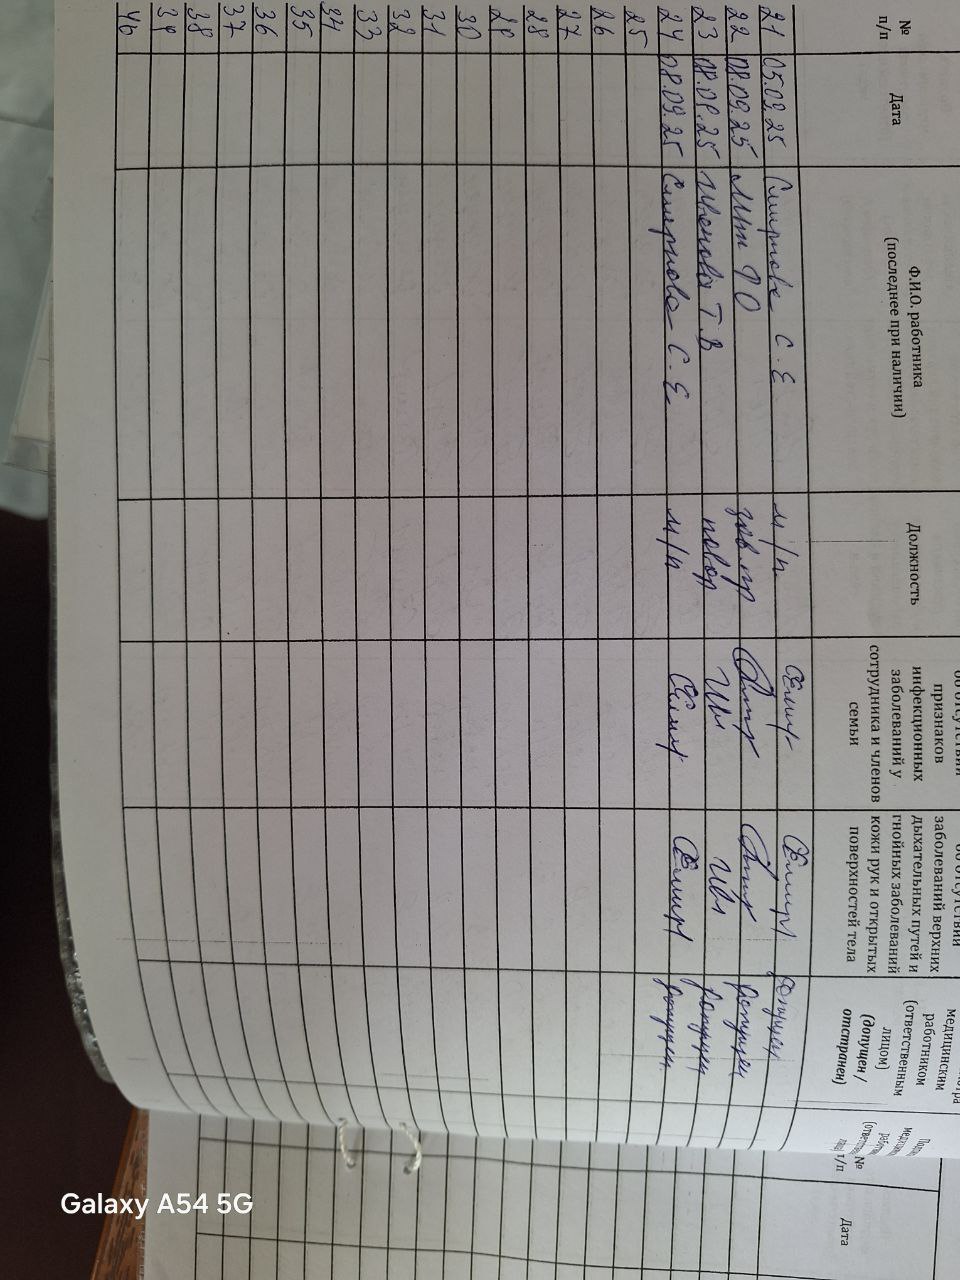 № п/п
Дата
Ф.И.О. работника
(последнее при наличии)
Должность
об отсутствии
признаков
инфекционных
заболеваний у
сотрудника и членов
семьи
об отсутствии
заболеваний верхних
дыхательных путей и
гнойных заболеваний
кожи рук и открытых
поверхностей тела
медицинским
работником
(ответственным
лицом)
(допущен /
отстранен)
21 05.09.25 Смирнова С.Е м/п допущен
22 08.09.25 зав.пр допущен
23 08.09.25 Т.В повар допущен
24 08.09.25 Смирнова С.Е м/п допущен
25
26
27
28
29
30
31
32
33
34
35
36
37
38
39
40
№
п/п
Дата
Galaxy A54 5G